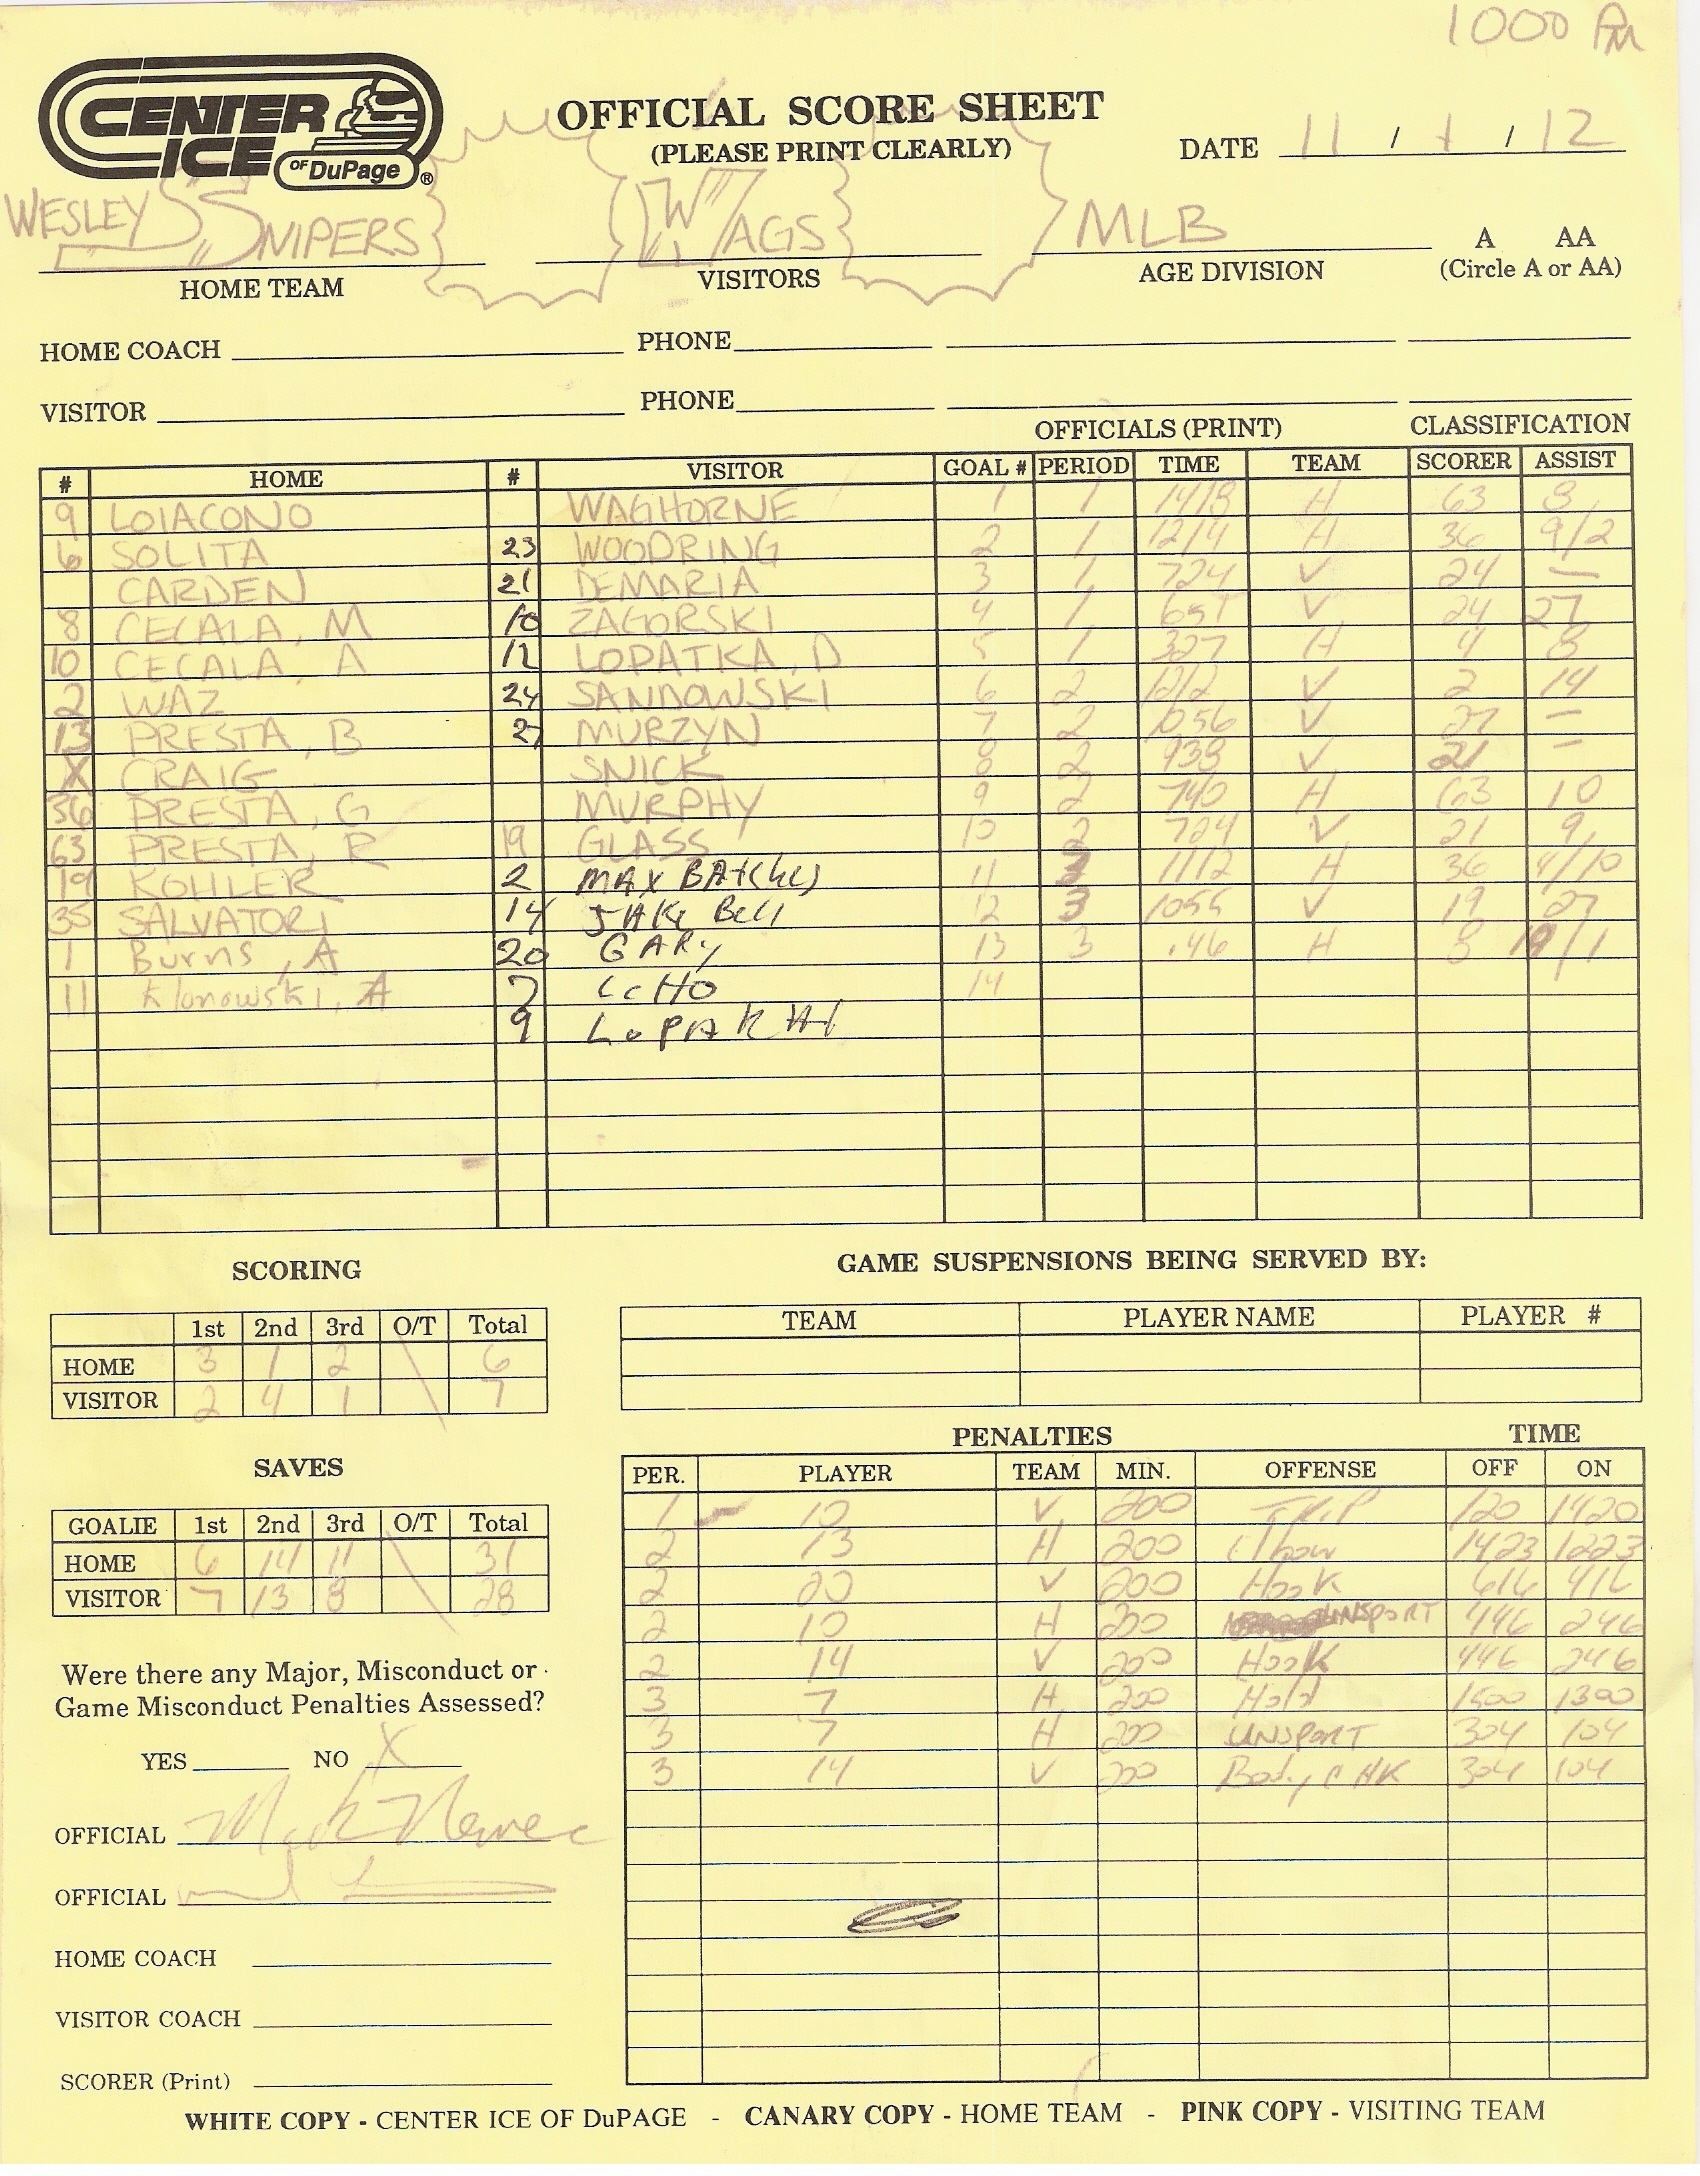 1000 PM
CENTER ICE OF DuPage ®
OFFICIAL SCORE SHEET
(PLEASE PRINT CLEARLY)
DATE 11 / 1 / 12
WESLEY SNIPERS WAGS MLB A AA
HOME TEAM VISITORS AGE DIVISION (Circle A or AA)
HOME COACH PHONE
VISITOR PHONE
OFFICIALS (PRINT) CLASSIFICATION
# HOME # VISITOR GOAL # PERIOD TIME TEAM SCORER ASSIST
9 LOIACONO WAGHORNE 1 1 1418 H 63 8
6 SOLITA 23 WOODRING 2 1 1214 H 36 9/2
CARDEN 21 DEMARIA 3 1 724 V 24 —
8 CECALA, M 10 ZAGORSKI 4 1 651 V 24 27
10 CECALA, A 12 LOPATKA, D 5 1 327 H 4 8
2 WAZ 24 SANDOWSKI 6 2 1212 V 2 14
13 PRESTA, B 27 MURZYN 7 2 1056 V 27 —
X CRAIG SNICK 8 2 938 V 21 —
36 PRESTA, G MURPHY 9 2 740 H 63 10
63 PRESTA, R 19 GLASS 10 2 724 V 21 9
19 KOHLER 2 MAX 11 3 1112 H 36 4/10
35 SALVATORI 14 JAKE Bell 12 3 1055 V 19 27
1 Burns, A 20 GARY 13 3 .46 H 8 /1
11 Klonowski, A 7 14
9
SCORING
1st 2nd 3rd O/T Total
HOME 3 1 2 \ 6
VISITOR 2 4 1 7
GAME SUSPENSIONS BEING SERVED BY:
TEAM PLAYER NAME PLAYER #
SAVES
GOALIE 1st 2nd 3rd O/T Total
HOME 6 14 11 \ 31
VISITOR 7 13 8 28
PENALTIES TIME
PER. PLAYER TEAM MIN. OFFENSE OFF ON
1 10 V 200 TRIP 120 1420
2 13 H 200 Elbow 1423 1223
2 20 V 200 HooK 616 416
2 10 H 200 UNSPORT 446 246
2 14 V 200 HooK 446 246
3 7 H 200 Hold 1500 1300
3 7 H 200 UNSPORT 304 104
3 14 V 200 Body CHK 304 104
Were there any Major, Misconduct or
Game Misconduct Penalties Assessed?
YES NO X
OFFICIAL
OFFICIAL
HOME COACH
VISITOR COACH
SCORER (Print)
WHITE COPY - CENTER ICE OF DuPAGE - CANARY COPY - HOME TEAM - PINK COPY - VISITING TEAM